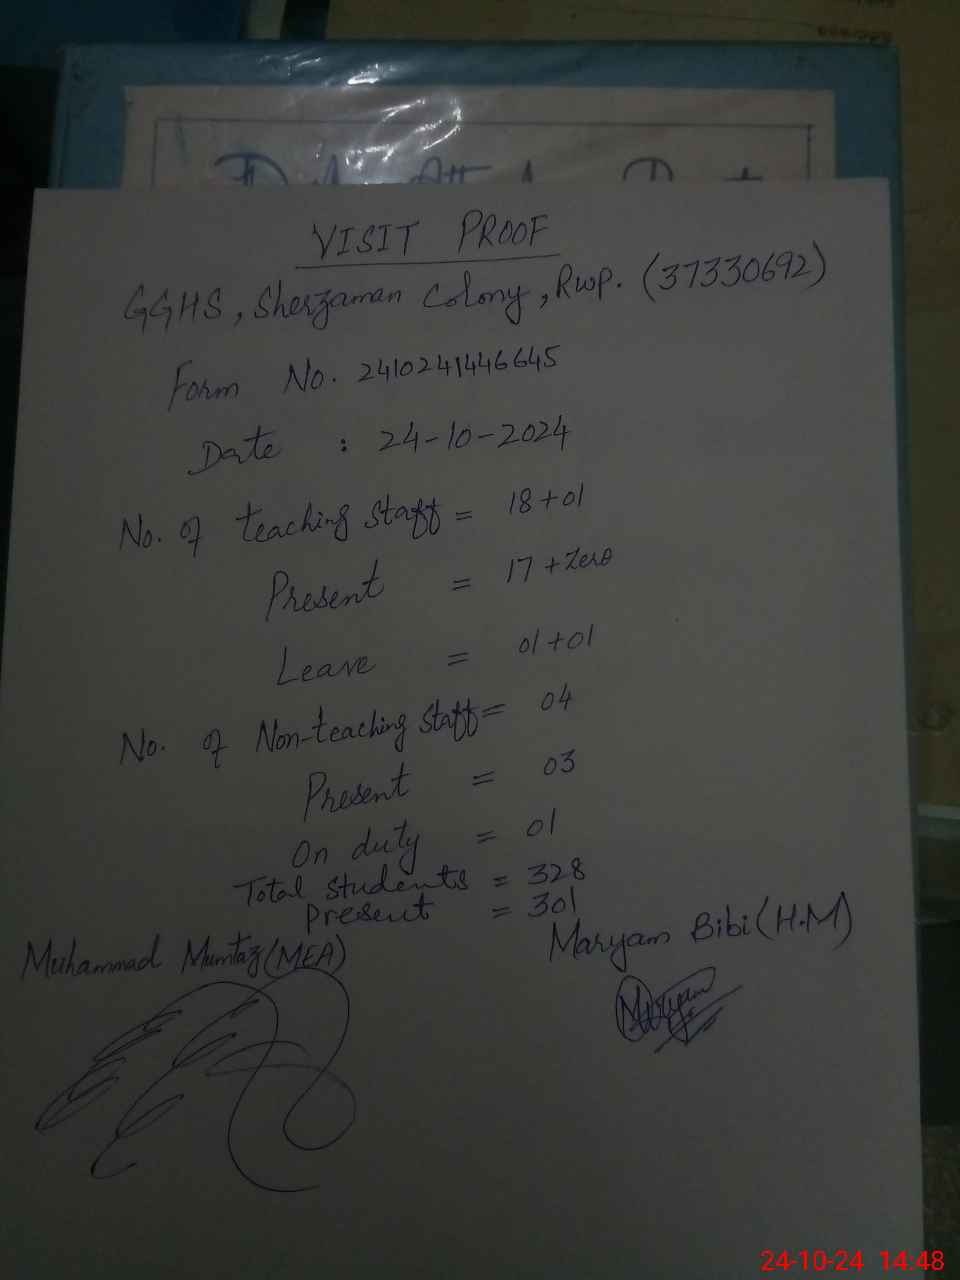 VISIT PROOF
GGHS, Sherzaman Colony, Rwp. (37330692)
Form No. 2410241446645
Date : 24-10-2024
No. of teaching staff = 18+01
Present = 17+Zero
Leave = 01+01
No. of Non-teaching staff = 04
Present = 03
On duty = 01
Total students = 328
present = 301
Muhammad Mumtaz (MEA)
Maryam Bibi (H.M)
Maryam
24-10-24 14:48